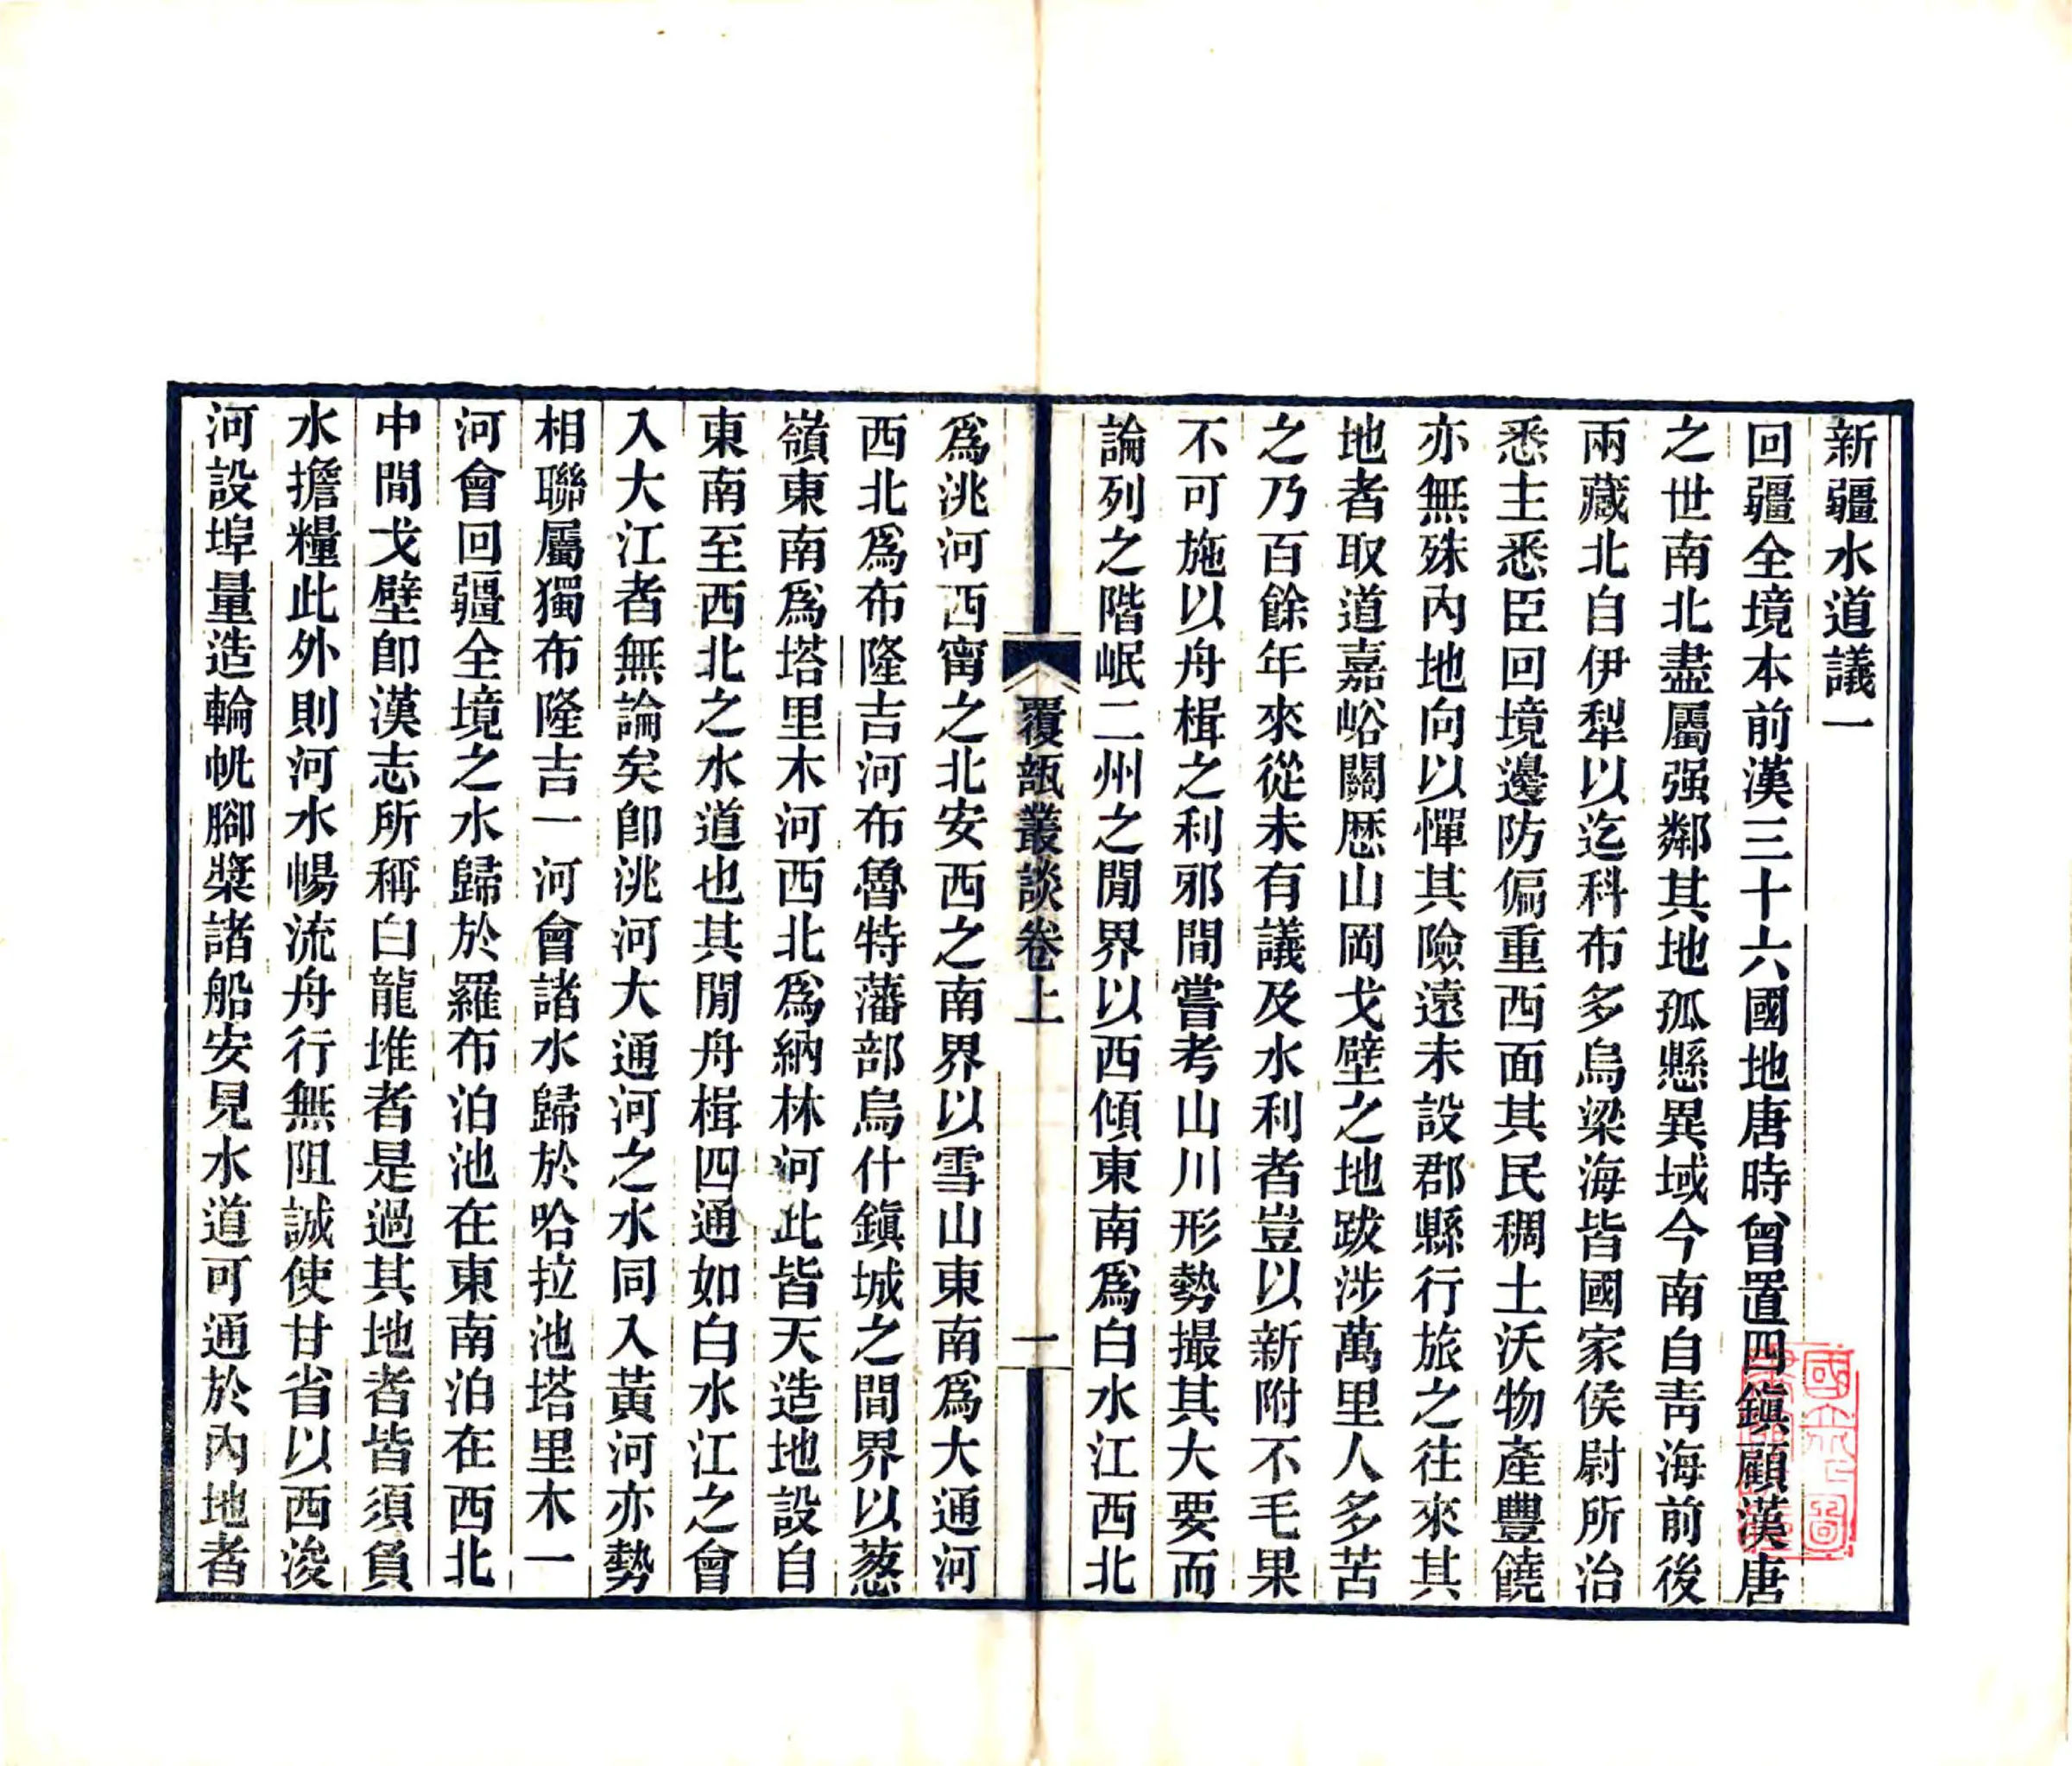 新疆水道議一
回疆全境本前漢三十六國地唐時曾置四鎮顧漢唐
之世南北盡屬强鄰其地孤懸異域今南自青海前後
兩藏北自伊犁以迄科布多烏梁海皆國家侯尉所治
悉主悉臣回境邊防偏重西面其民稠土沃物產豐饒
亦無殊內地向以憚其險遠未設郡縣行旅之往來其
地者取道嘉峪關歷山岡戈壁之地跋涉萬里人多苦
之乃百餘年來從未有議及水利者豈以新附不毛果
不可施以舟楫之利邪間嘗考山川形勢撮其大要而
論列之階岷二州之閒界以西傾東南爲白水江西北
覆瓿叢談卷上
一
爲洮河西甯之北安西之南界以雪山東南爲大通河
西北爲布隆吉河布魯特藩部烏什鎭城之間界以蔥
嶺東南爲塔里木河西北爲納林河此皆天造地設自
東南至西北之水道也其閒舟楫四通如白水江之會
入大江者無論矣卽洮河大通河之水同入黃河亦勢
相聯屬獨布隆吉一河會諸水歸於哈拉池塔里木一
河會回疆全境之水歸於羅布泊池在東南泊在西北
中間戈壁卽漢志所稱白龍堆者是過其地者皆須負
水擔糧此外則河水暢流舟行無阻誠使甘省以西浚
河設埠量造輪帆腳槳諸船安見水道可通於內地者